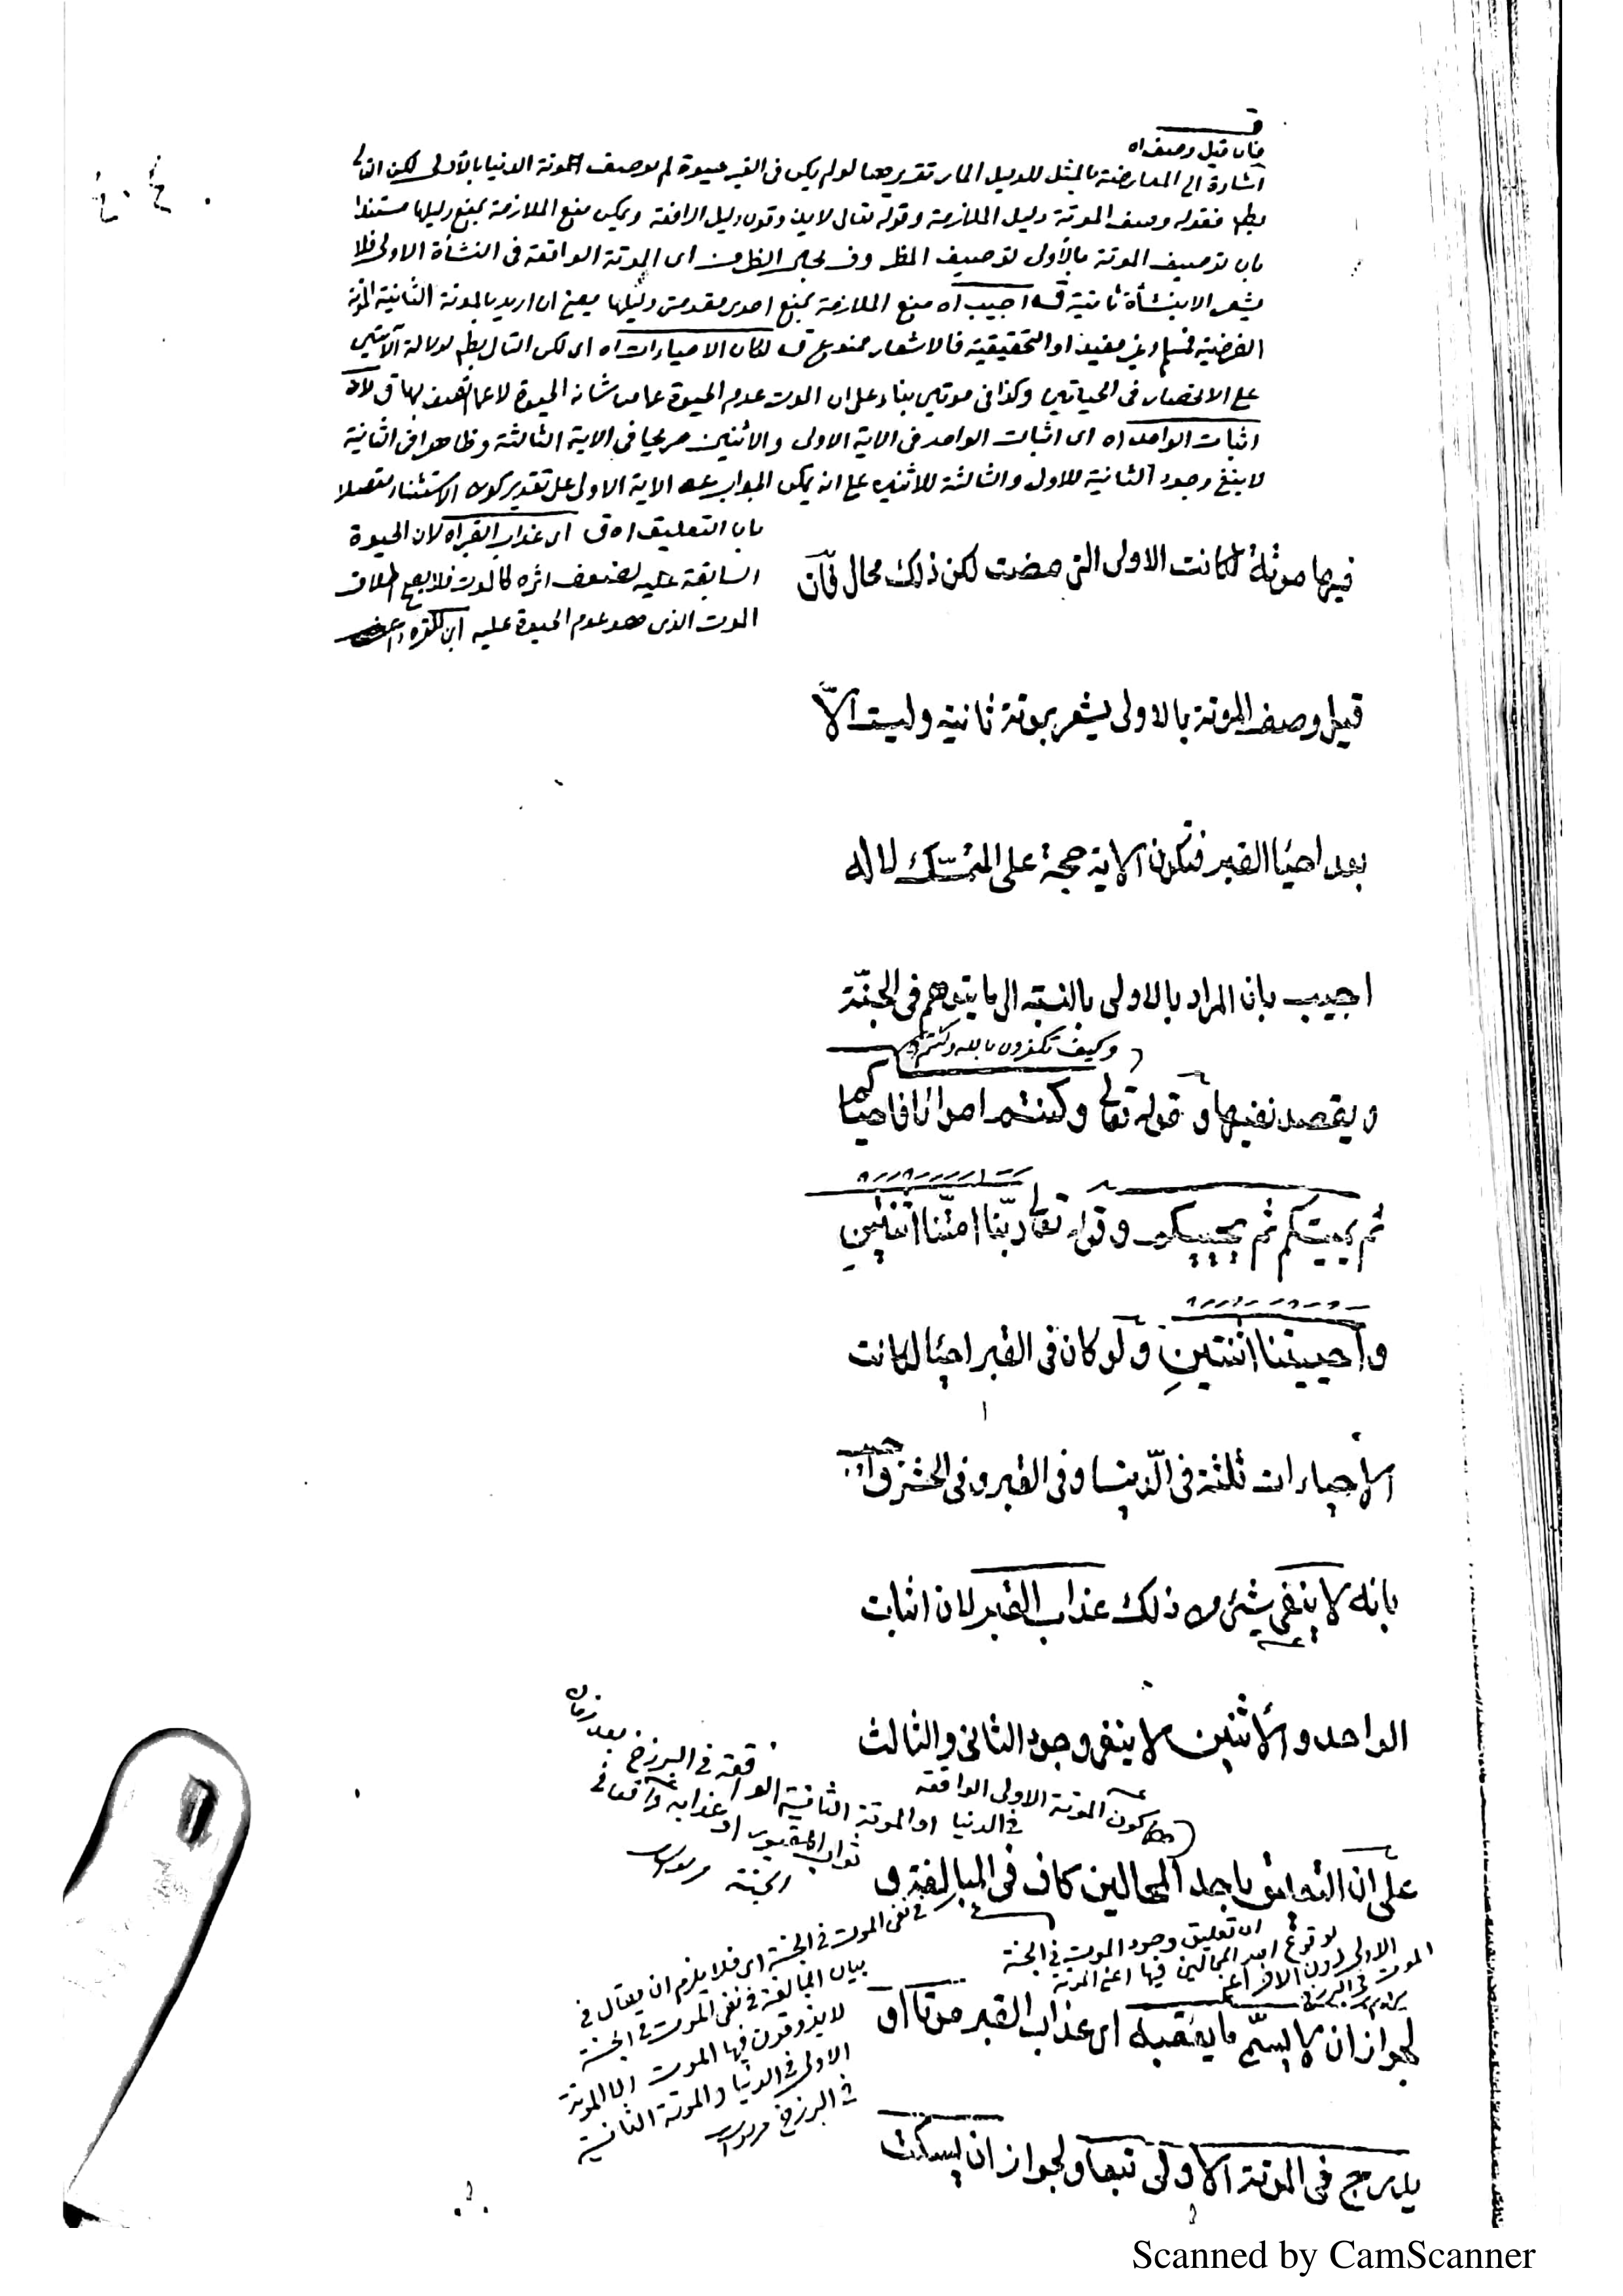 ق
فان قيل وصف اه
اشارة الى المعارضة بالمثل للدليل المار تقريرها لو لم يكن في القبر حيوة لم يوصف الموتة الدنيا بالأولى لكن التالى
بط فقوله وصف الموتة دليل الملازمة وقوله تعالى لا يذوقون دليل الرافعة ويمكن منع الملازمة بمنع دليلها مستندا
بان توصيف الموتة بالأولى توصيف المظروف بحال الظرف اى الموتة الواقعة في النشأة الاولى فلا
يشعر الا بنشأة ثانية ق اجيب اه منع الملازمة بمنع احدى مقدمتى دليلها يعنى ان اريد بالموتة الثانية
الفرضية فمسلم وغير مفيد او التحقيقية فالاشعار ممنوع ق لكان الاحياءات اه اى لكن التالى بط لدلالة الآيتين
على الانحصار في الحياتين وكذا في موتين بناء على ان الموت عدم الحيوة عما من شانه الحيوة لا عما اتصف بها ق لان
اثبات الواحد اه اى اثبات الواحد في الاية الاولى والاثنين صريحا في الاية الثالثة وظاهرا في الثانية
لا ينفى وجود الثانية للاول والثالثة للاثنين على انه يمكن الجواب عن الاية الاولى على تقدير كون الاستثناء متصلا
بان التعليق اه ق اى عذاب القبر اه لان الحيوة
السابقة عليه لضعف اثره كالموت فلا يصح اطلاق
الموت الذى هو عدم الحيوة عليه ابن القره داغى
فيها موتة لكانت الاولى التى مضت لكن ذلك محال فان
قيل وصف الموتة بالاولى يشعر بموتة ثانية وليست الّا
بعد احيا القبر فتكون الاية حجة على المتمسّك لا له
اجيب بان المراد بالاولى بالنسبة الى ما يتوهم في الجنّة
وكيف تكفرون بالله وكنتم
ويقصد نفيها و قوله تعالى وكنتم امواتا فاحياكم
ثم يميتكم ثم يحييكم وقوله تعالى ربّنا امتّنا اثنتينِ
وأحييتنا اثنتينِ ولو كان في القبر احيا لكانت
الإحياءات ثلثة في الدّنيا وفي القبر وفي الحشر واجيب
بانه لا ينفى شئ من ذلك عذاب القبر لان اثبات
الواحد والأثنين لا ينفى وجود الثانى والثالث
كون الموتة الاولى الواقعة
في الدنيا او الموتة الثانية الواقعة في البرزخ بعد زمان
ثواب المقبور او عذابه واقعا في
الجنة
على ان التعليق باحد المحالين كاف في المبالغة و
في نفى الموت في الجنة اى فلا يلزم ان يقال في
بيان المبالغة في نفى الموت في الجنة
لا يذوقون فيها الموت الا الموتة
الاولى في الدنيا والموتة الثانية
في البرزخ
ان تعليق وجود الموت في الجنة
لوقوع احد المحالين فيها اعنى الموتة
الاولى دون الاخر اعنى
الموت في البرزخ
لجواز ان لا يسمّ ما يعقبه اى عذاب القبر موتا او
يندرج في الموتة الاولى تبعا ولجواز ان يسكت
Scanned by CamScanner